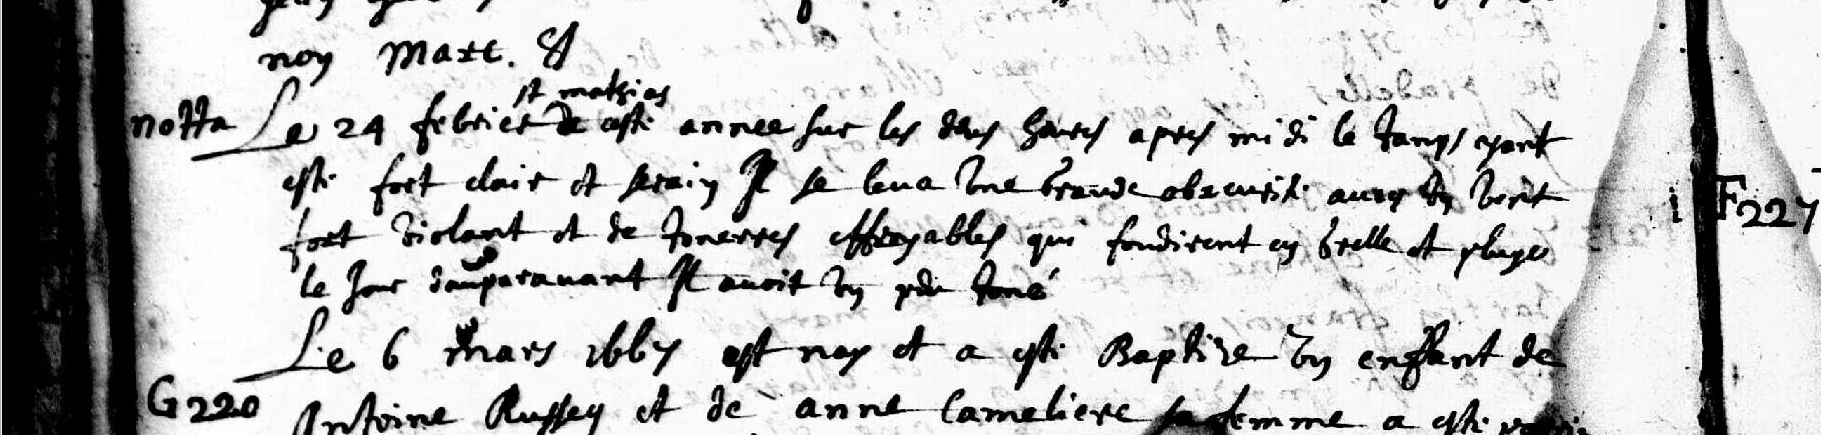 noy Marc.
st mathias
notta Le 24 febrier de ceste annee sur les deus heures apres midi le tamps eyant
esté fort clair et serain Il se leva une grande obscurité avec un vent
fort violant et de tonerres effroyables qui fondirent en grelle et pluye
le jour dauparavant Il avoit un peu toné
Le 6 mars 1667 est nay et a esté Baptize un enffant de
G220 Antoine Russey et de anne Cameliere sa femme a esté
F227